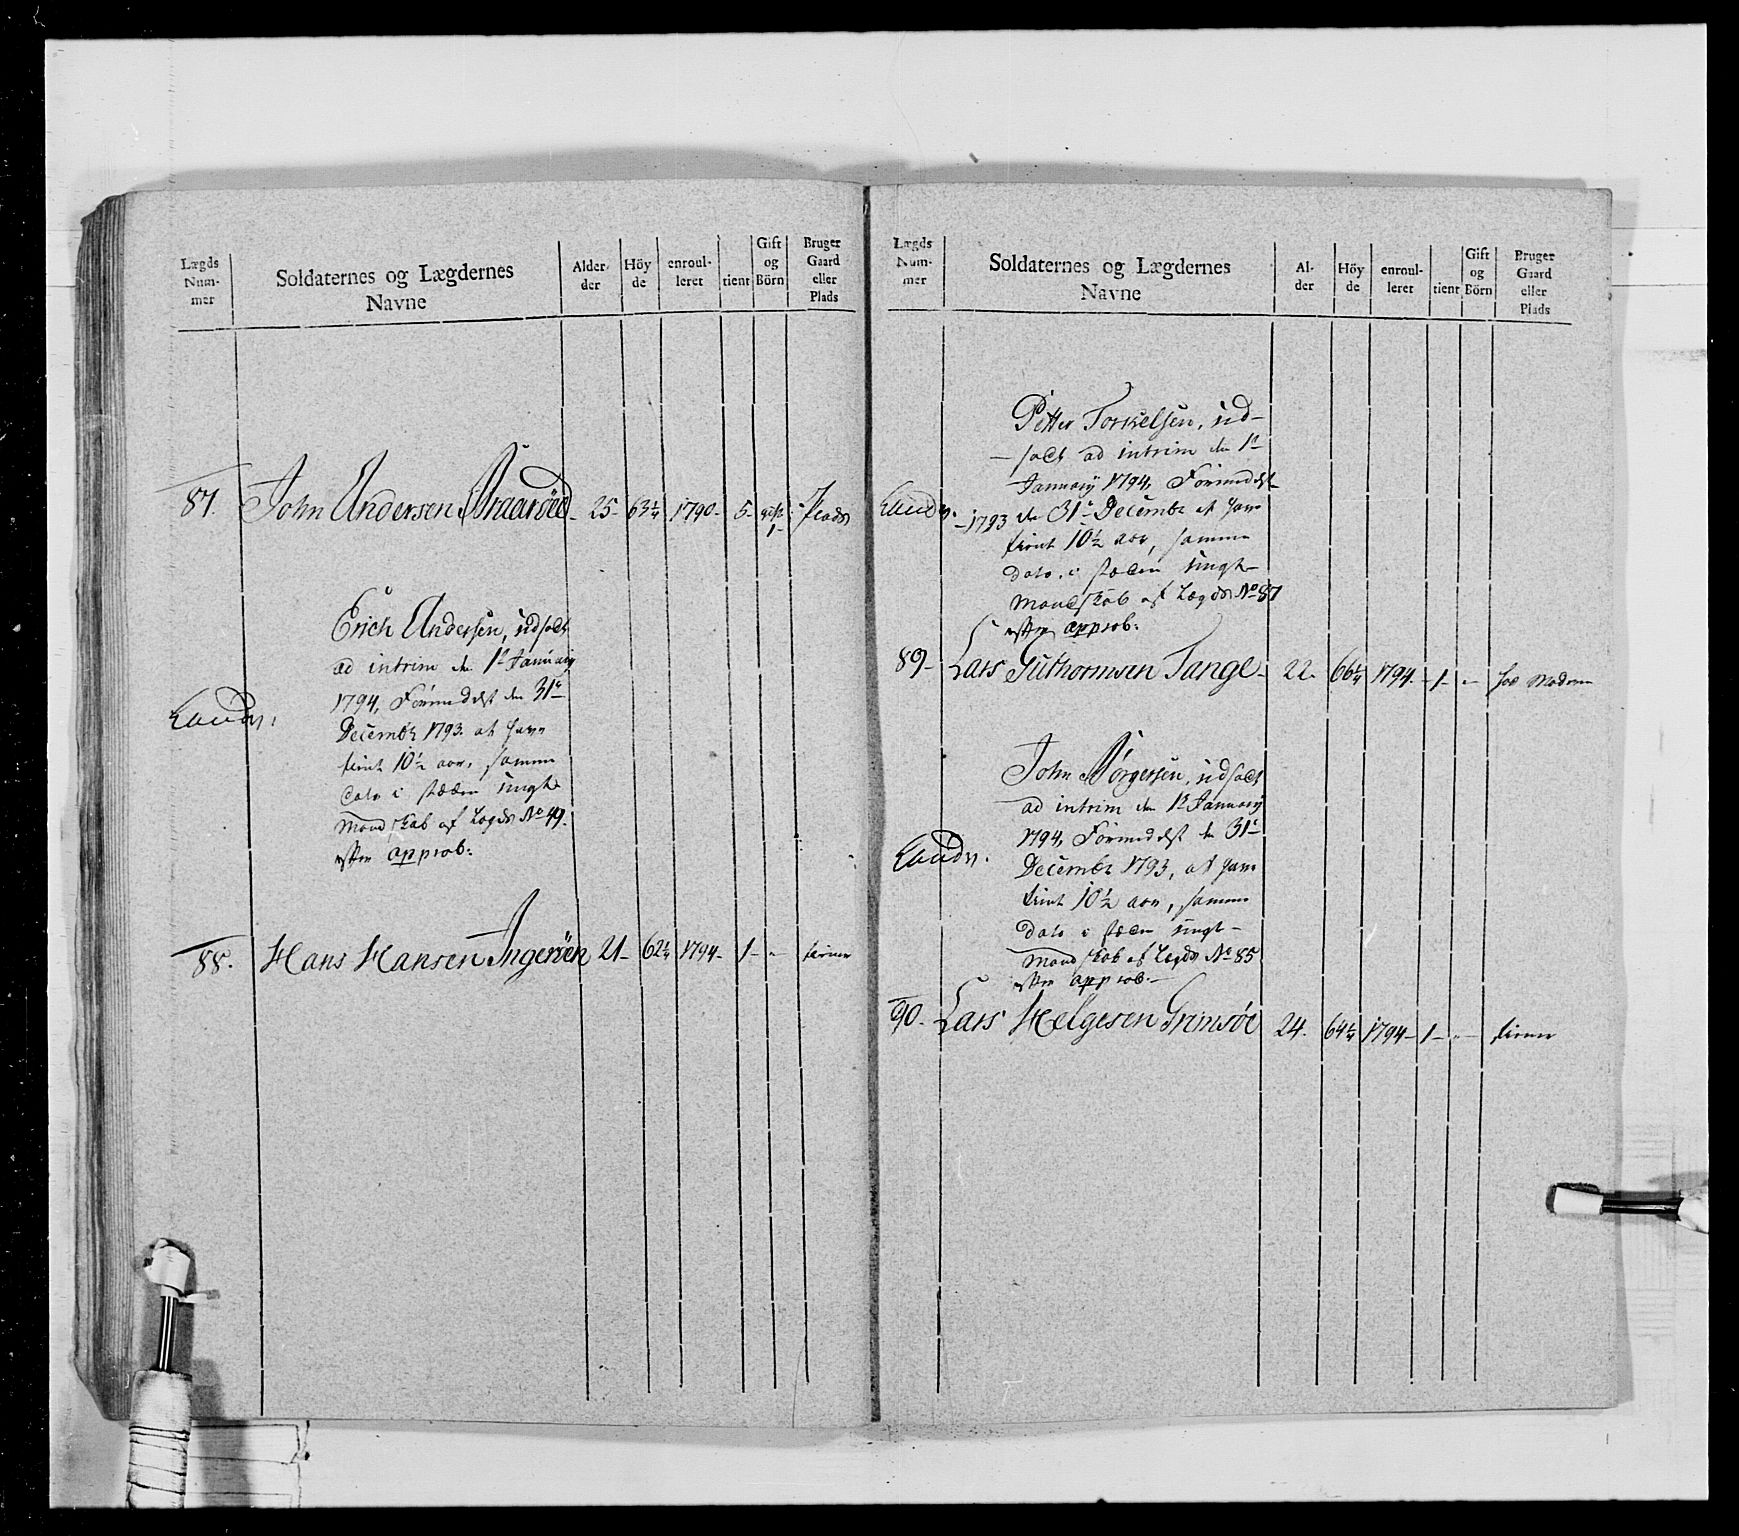 Lægds Num- mer
Soldaternes og Lægdernes Navne
Alder- der
Höy de
enroul- leret
tient
Gift og Börn
Bruger Gaard eller Plads
87. John Andersen Braaröed - 25 - 63¼ 1790 - 5 - gift 1 - Plads
Erich Andersen, udsadt
ad intrim den 1te Januarij
1794, Formedelst den 31te
Landv:
Decembr 1793. at have
tient 10½ aar, samme
dato i stæden ungt
Mandskab af Lægds No 49.
efter approb:
88. Hans Hansen Ingeröen 21 - 62¼ 1794 - 1 - " tiener
Lægds Num- mer
Soldaternes og Lægdernes Navne
Al- der
Höy de
enroul- leret
tient
Gift og Börn
Bruger Gaard eller Plads
Petter Torkelsen, ud-
- sadt ad intrim den 1te
Januarij 1794, Formedelst
Landv. - 1793 den 31te Decembr at have
tient 10½ aar, samme
dato i stæden ungt
Mandskab af Lægds No 87
efter approb:
89 - Lars Guthormsen Tange - 22 - 66¼ 1794 - 1 - " - hos Moderen
John Börgersen, udsadt
ad intrim den 1te Januarij
1794, Formedelst den 31te
Landv.
Decembr 1793, at have
tient 10½ aar, samme
dato i stæden ungt -
Mandskab af Lægds No 85
efter approb: -
90. Lars Helgesen Grimsöe 24. 64¼ 1794 - 1 - " - tiener